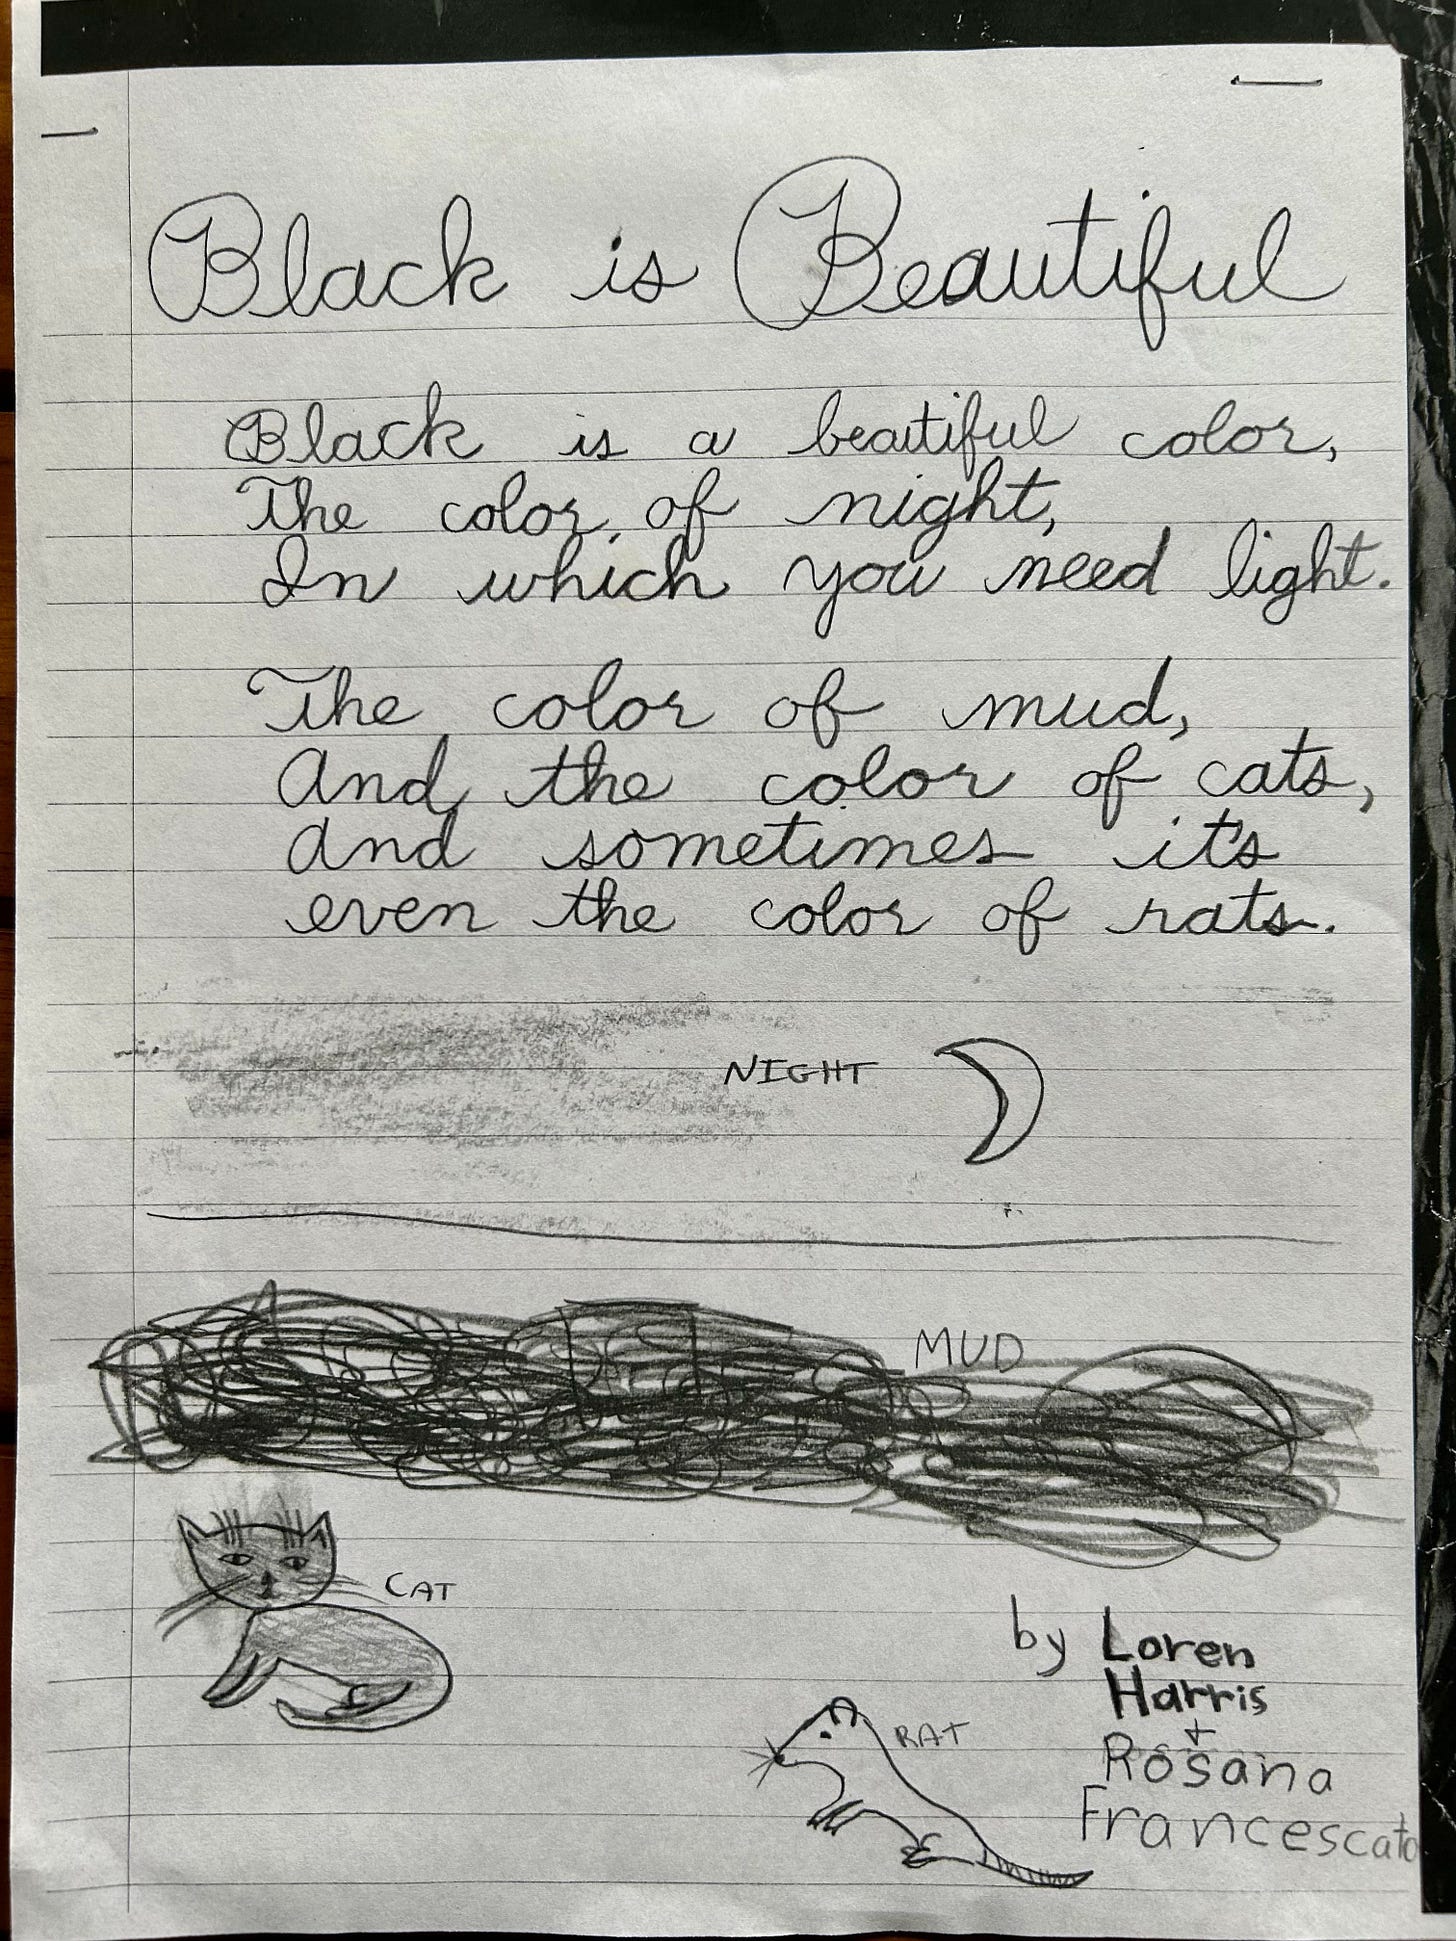 Black is Beautiful
Black is a beautiful color,
The color of night,
In which you need light.
The color of mud,
And the color of cats,
And sometimes it's
even the color of rats.
NIGHT
MUD
CAT
by Loren
Harris
+
Rosana
RAT
Francescato